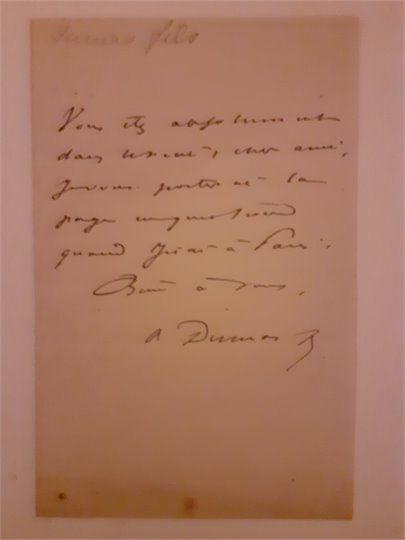 Dumas fils
Vous êtes absolument
dans le vrai, cher ami,
je vous porterai la
page en question
quand j'irai à Paris.
Bien à vous,
A Dumas f